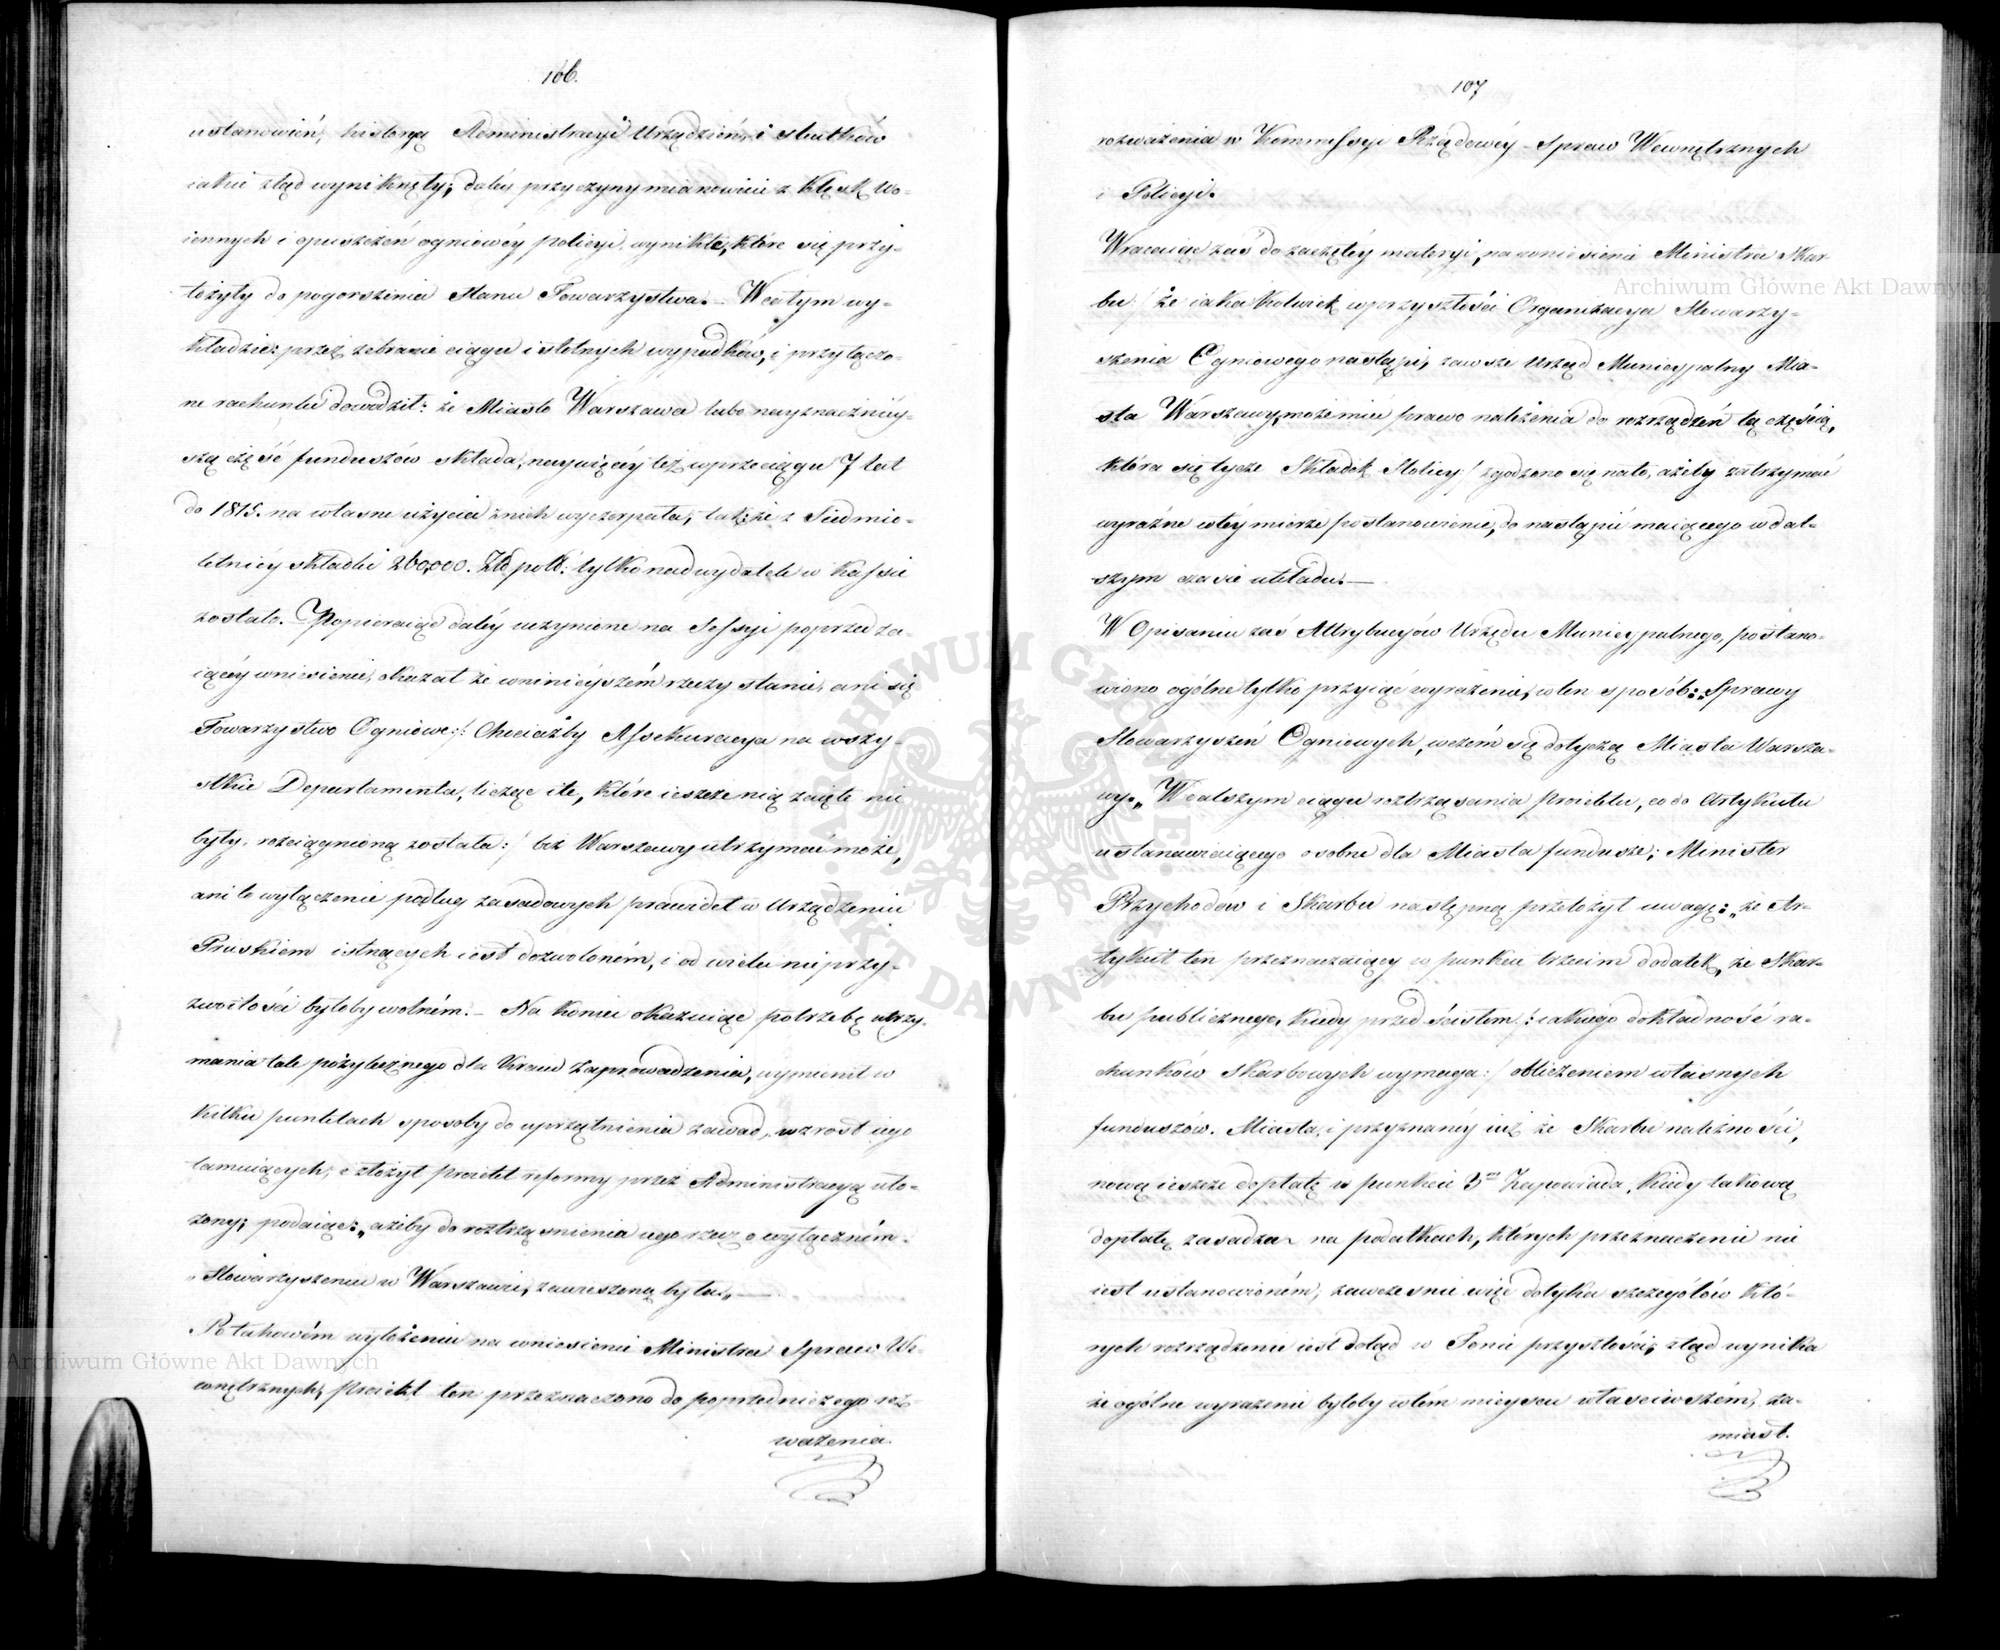 106.
ustanowień, historyą Administracyi Urządzień, i skutków
iakie ztąd wyniknęły; daléy przyczyny mianowicie z klęsk wo-
iennych i opuszczeń ogniowéy policyi, wynikłe, które się przy-
łożyły do pogorszenia stanu Towarzystwa. – W całym wy-
kładzie przez zebranie ciągu istotnych wypadków, i przyłączo-
ne rachunki dowodził: że Miasto Warszawa lubo nayznacznièy-
szą część funduszów składa, naywięcéy też w przeciągu 7 lat
do 1815. na własne użycia znich wyczerpała, tak że z Siedmio-
letniéy składki 260,000. Złd polk: tylko nad wydatek w Kassie
zostało. Popieraiąc daléy uczynione na Sessyi poprzedza-
iącéy wniesienie, okazał że w niniéyszém rzeczy stanie, ani się
Towarzystwo Ogniowe :/: Chociażby Assekuracya na wszy-
stkie Departamenta, licząc ile, które ieszcze nią zaięte nie
były, rozciągnioną została :/ bez Warszawy utrzymać może,
ani to wyłączenie podług zasadowych prawideł w Urządzeniu
Pruskiem istnących iest dozwoloném, i od wielu nieprzy-
zwoitości byłoby wolném. – Na koniec okazuiąc potrzebę utrzy-
mania tak pożytecznego dla Kraiu zaprowadzenia, wymienił w
kilku punktach sposoby do uprzątnienia zawad, wzrost iego
tamuiących, i złożył proiekt reformy przez Administracyą uło-
żony; podaiąc: „ażeby do roztrząśnienia iego rzecz o wyłączném
„Stowarzyszeniu w Warszawie, zawieszoną była„ —
Po takowém wyłożeniu na wniesienie Ministra Spraw We-
wnętrznych, Proiekt ten przeznaczono do poprzedniczego roz-
ważenia
107
rozważenia w Kommissyi Rządowéy Spraw Wewnętrznych
i Policyi.
Wracaiąc zaś do zaczętéy materyi, na wniesienie Ministra Skar-
bu / że iakakolwiek w przyszłości Organizacya Stowarzy-
szenia Ogniowego nastąpi, zawsze Urząd Municypalny Mia-
sta Warszawy, może mieć prawo należenia do rozrządzeń tą częścią,
która się tycze Składek Stolicy / zgodzono się na to, ażeby zatrzymać
wyraźne w téy mierze postanowienie, do nastąpić maiącego w dal-
szym czasie układu. —
W Opisaniu zaś Attrybucyów Urzędu Municypalnego, postano-
wiono ogólne tylko przyiąć wyrażenie, w ten sposób: „Sprawy
Stowarzyszeń Ogniowych, w czém się dotyczą Miasta Warsza-
wy„ W dalszym ciągu roztrząsania Proiektu, co do Artykułu
ustanawiaiącego osobne dla Miasta fundusze; Minister
Przychodów i Skarbu następną przełożył uwagę: „że Ar-
tykuł ten przeznaczaiący w punkcie trzecim dodatek, ze Skar-
bu publicznego, kiedy przed ścisłem /: iakiégo dokładność ra-
chunków Skarbowych wymaga :/ obliczeniem własnych
funduszów. Miasta, i przyznanéy iuż ze Skarbu należności,
nową ieszcze dopłatę w punkcie 3m Zapowiada, Kiedy takową
dopłatę zasadza na podatkach, których przeznaczenie nie
iest ustanowioném, zawcześnie więc dotyka szczegółów któ-
rych rozrządzenie iest dotąd w Tonie przyszłości; ztąd wynika
że ogólne wyrażenie byłoby w tém mieyscu właściwszém, za-
miast.
Archiwum Główne Akt Dawnych
Archiwum Główne Akt Dawnych
ARCHIWUM GŁÓWNE AKT DAWNYCH